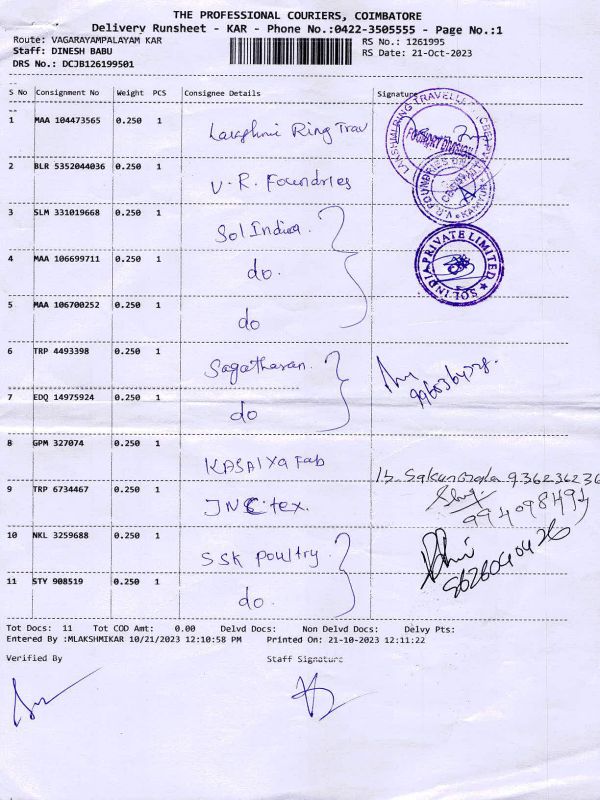 THE PROFESSIONAL COURIERS, COIMBATORE
Delivery Runsheet - KAR - Phone No.:0422-3505555 - Page No.:1
Route: VAGARAYAMPALAYAM KAR RS No.: 1261995
Staff: DINESH BABU RS Date: 21-Oct-2023
DRS No.: DCJB126199501
S No Consignment No Weight PCS Consignee Details Signature
1 MAA 104473565 0.250 1 Lakshmi Ring Trav
2 BLR 5352044036 0.250 1 V.R. Foundries
3 SLM 331019668 0.250 1 Sol India.
4 MAA 106699711 0.250 1 do.
SOL INDIA PRIVATE LIMITED
5 MAA 106700252 0.250 1 do
6 TRP 4493398 0.250 1
7 EDQ 14975924 0.250 1 do
8 GPM 327074 0.250 1 KASAIYA Fab
9 TRP 6734467 0.250 1 JNC tex.
10 NKL 3259688 0.250 1 SSK Poultry
11 STY 908519 0.250 1 do.
Tot Docs: 11 Tot COD Amt: 0.00 Delvd Docs: Non Delvd Docs: Delvy Pts:
Entered By :MLAKSHMIKAR 10/21/2023 12:10:58 PM Printed On: 21-10-2023 12:11:22
Verified By Staff Signature